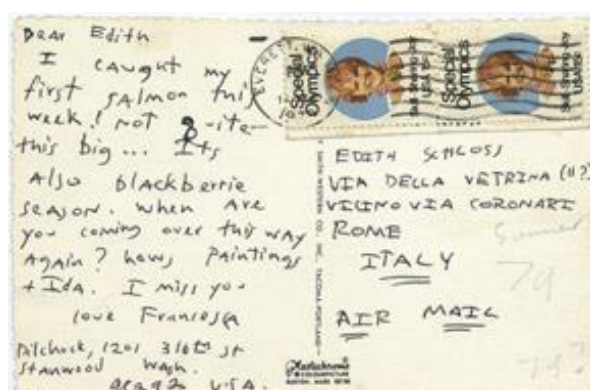 Dear Edith
I caught my
first salmon this
week! not -ite-
this big... Its
Also blackberrie
season. When Are
you coming over this way
Again? hows Paintings
+ Ida. I miss you
love Francesca
Pilchuck, 1201 316th st
Stanwood Wash.
U.S.A.
EVERETT
Special Olympics
Skill·Sharing·Joy
USA 15c
Special Olympics
Skill·Sharing·Joy
USA 15c
EDITH SCHLOSS
VIA DELLA VETRINA (11?)
VICINO VIA CORONARI
ROME
ITALY
AIR MAIL
Summer
79
79?
SMITH WESTERN CO., INC. TACOMA-PORTLAND
Plastichrome